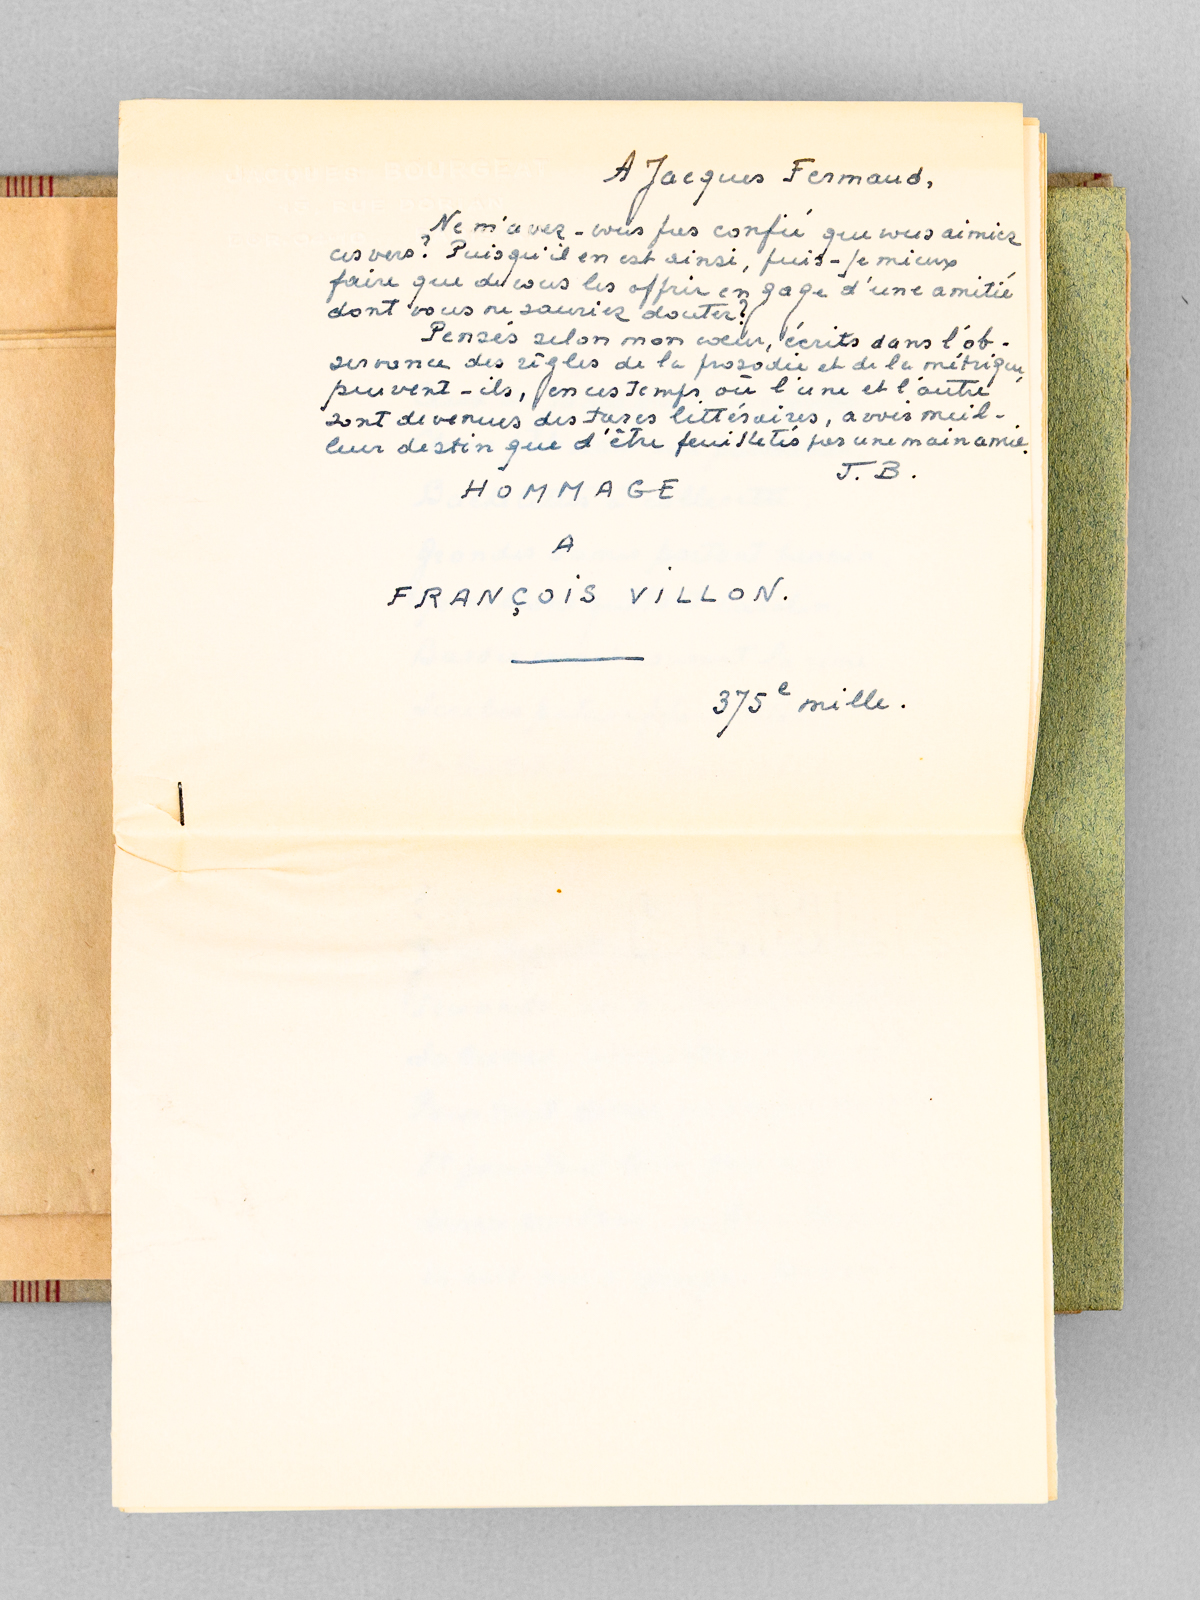 A Jacques Fermaud,
Ne m'avez-vous pas confié que vous aimiez
ces vers? Puisqu'il en est ainsi, puis-je mieux
faire que de vous les offrir en gage d'une amitié
dont vous ne sauriez douter?
Pensés selon mon cœur, écrits dans l'ob-
servance des règles de la prosodie et de la métrique
peuvent-ils, en ces temps où l'une et l'autre
sont devenues des tares littéraires, avoir meil-
leur destin que d'être feuilletés par une main amie.
J. B.
HOMMAGE
A
FRANÇOIS VILLON.
375e mille.